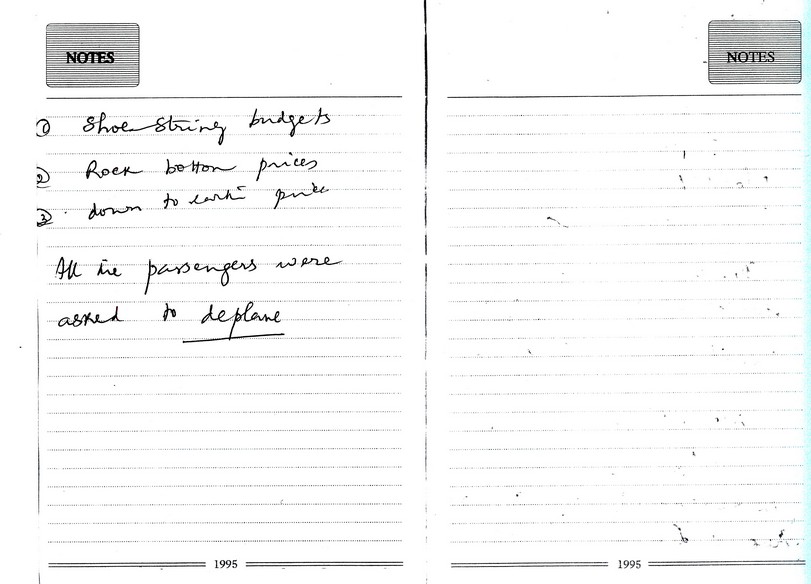 NOTES
NOTES
① Shoe-String budgets
② Rock bottom prices
③ down to earth price
All the passengers were
asked to deplane
1995
1995